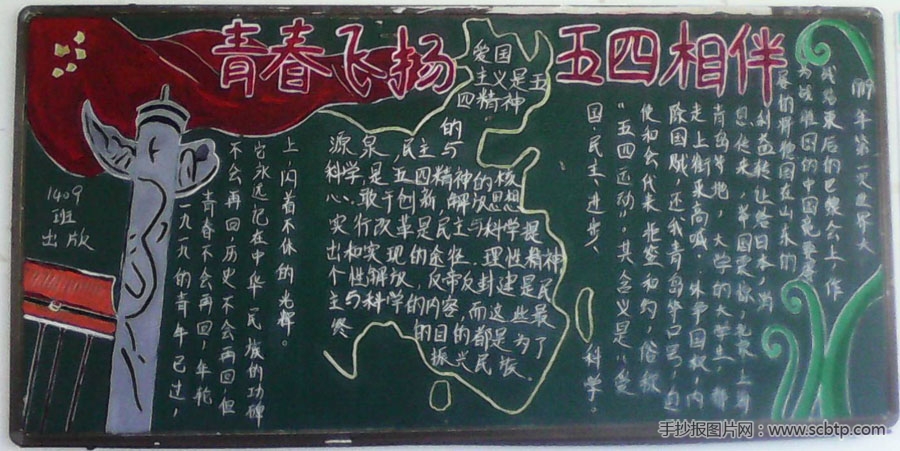 青春飞扬 五四相伴
爱国
主义是五
四精神
的
源泉,民主与
科学,是五四精神的核
心、敢于创新,解放思想
实行改革是民主与科学提
出和实现的途径、理性精神
个性解放,反帝反封建是民
主与科学的内容,而这些最
终
的目的都是为了
振兴民族。
1919年第一次世界大
战结束后的巴黎会上,作
为战胜国的中国
利益转让给日本,消
思传来,举国震惊,
青岛等地,大学的大学生,都
走上街来高喊,外争国权,内
除国贼,还我青岛等口号,
使和会代表拒签和约,俗称
“五四运动”,其含义是“爱
国、民主、进步、
科学。
一九一九的青年已过,
青春不会再回,年轮
不会再回,历史不会再回但
它永远记在中华民族的功碑
上,闪着不休的光辉。
1409
班
出版
手抄报图片网:www.scbtp.com